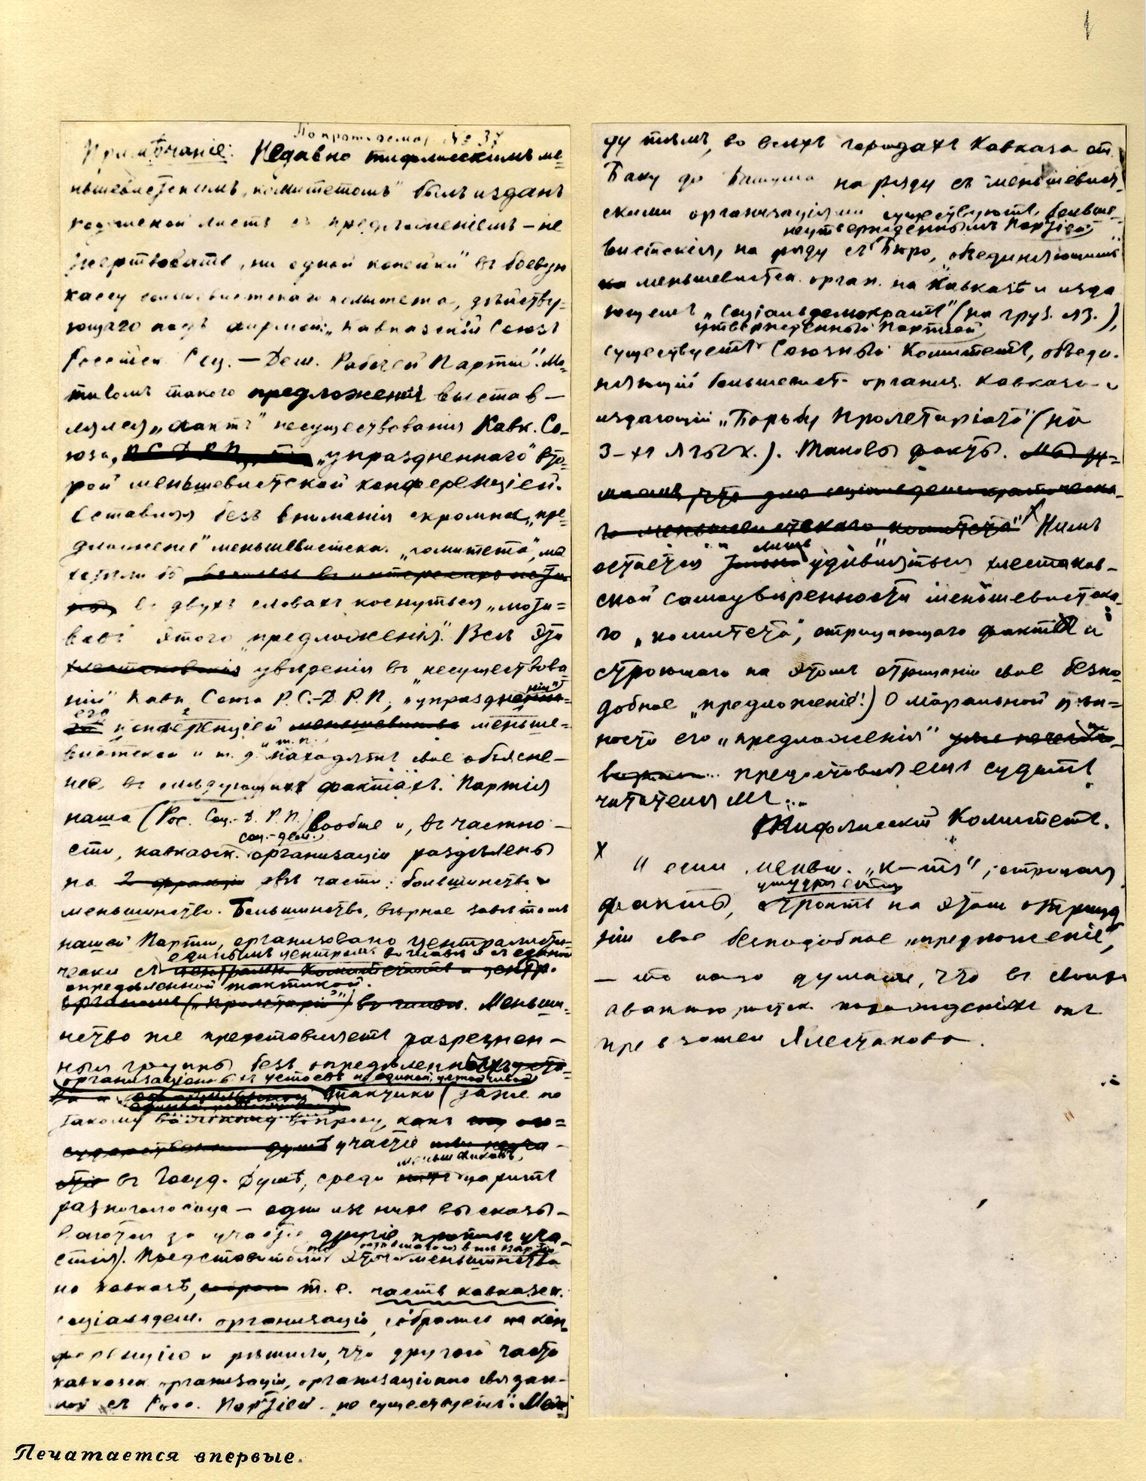 Примѣчаніе: Недавно тифлисскимъ ме-
ньшевистскимъ „комитетомъ" былъ изданъ
листъ съ предложеніемъ – не
жертвовать „ни одной копейки" въ боевую
кассу большевистскаго комитета, дѣйству-
ющаго подъ фирмой „Кавказскій Союзъ
Россійск. Соц. – Дем. Рабочей Партіи". Мо-
тивомъ такого предложенія выстав-
лялся „фактъ" несуществованія Кавк. Со-
юза, Р. С. Д. Р. П., „упраздненнаго" вто-
рой меньшевистской конференціей.
Оставляя безъ вниманія скромное „пре-
дложеніе" меньшевистск. „комитета", мы
хотѣли бы
въ двухъ словахъ коснуться „моти-
вовъ" этого предложенія". Вся эта
увѣренія въ „несуществова-
ніи" Кавк. Союза Р. С.-Д. Р. П., „упраздненіи"
его конференціей меньше-
вистской и т. д. и т. п. находятъ свое объясне-
ніе въ слѣдующихъ фактахъ. Партія
наша (Рос. Соц.-Д. Р. П.) вообще и, въ частно-
сти, кавказск. соц.-дем. организаціи раздѣлены
на 2 фракціи двѣ части: большинство и
меньшинство. Большинство, вѣрное завѣтамъ
нашей Партіи, организовано централисти-
чески съ единымъ центромъ во главѣ и съ единой
опредѣленной тактикой.
Меньши-
нство же представляетъ разрознен-
ныя группы безъ опредѣленныхъ
организаціонныхъ устоевъ и единой устойчивой
тактики (даже по
такому важному вопросу, какъ
участіе
въ Госуд. Думѣ, среди меньшевиковъ царитъ
разноголосица – одни изъ нихъ высказы-
ваются за участіе, другіе противъ уча-
стія). Представители этого меньшинства
на Кавказѣ, т. е. часть кавказск.
соціальдем. организаціи, собрались на кон-
ференцію и рѣшили, что другой части
кавказск. организаціи, организаціонно связан-
ной съ Росс. Партіей – не существуетъ. Меж-
ду тѣмъ, во всѣхъ городахъ Кавказа от
Баку до Батума на ряду съ меньшевист-
скими организаціями существуютъ больше-
вистскія, на ряду съ неутвержденнымъ Партіей Бюро, объединяющимъ
меньшевистск. орган. на Кавказѣ и изда-
ющемъ „Соціальдемократъ" (на груз. яз.),
существуетъ утвержденный Партіей Союзный Комитетъ, объеди-
няющій большевист. организ. Кавказа и
издающій „Борьбу Пролетаріата" (на
3-хъ языкх.). Таковы факты. Мы ду-
маемъ, что для соціальдемократическа-
го меньшевистскаго комитета" Намъ
остается лишь удивляться хлестаков-
ской самоувѣренности меньшевистска-
го „комитета", отрицающаго факты и
строющаго на этомъ отрицаніи свое безпо-
добное „предложеніе!) О моральной цѣн-
ности его „предложенія"
предоставляемъ судить
читателямъ...
Тифлисскій Комитетъ.
х
И если меньш. „к-тъ", отрицая
факты, ухитряется строить на этомъ отрица-
ніи свое безподобное „предложеніе",
– то надо думать, что въ своихъ
авантюристск. похожденіяхъ онъ
превзошелъ Хлестакова.
Печатается впервые.